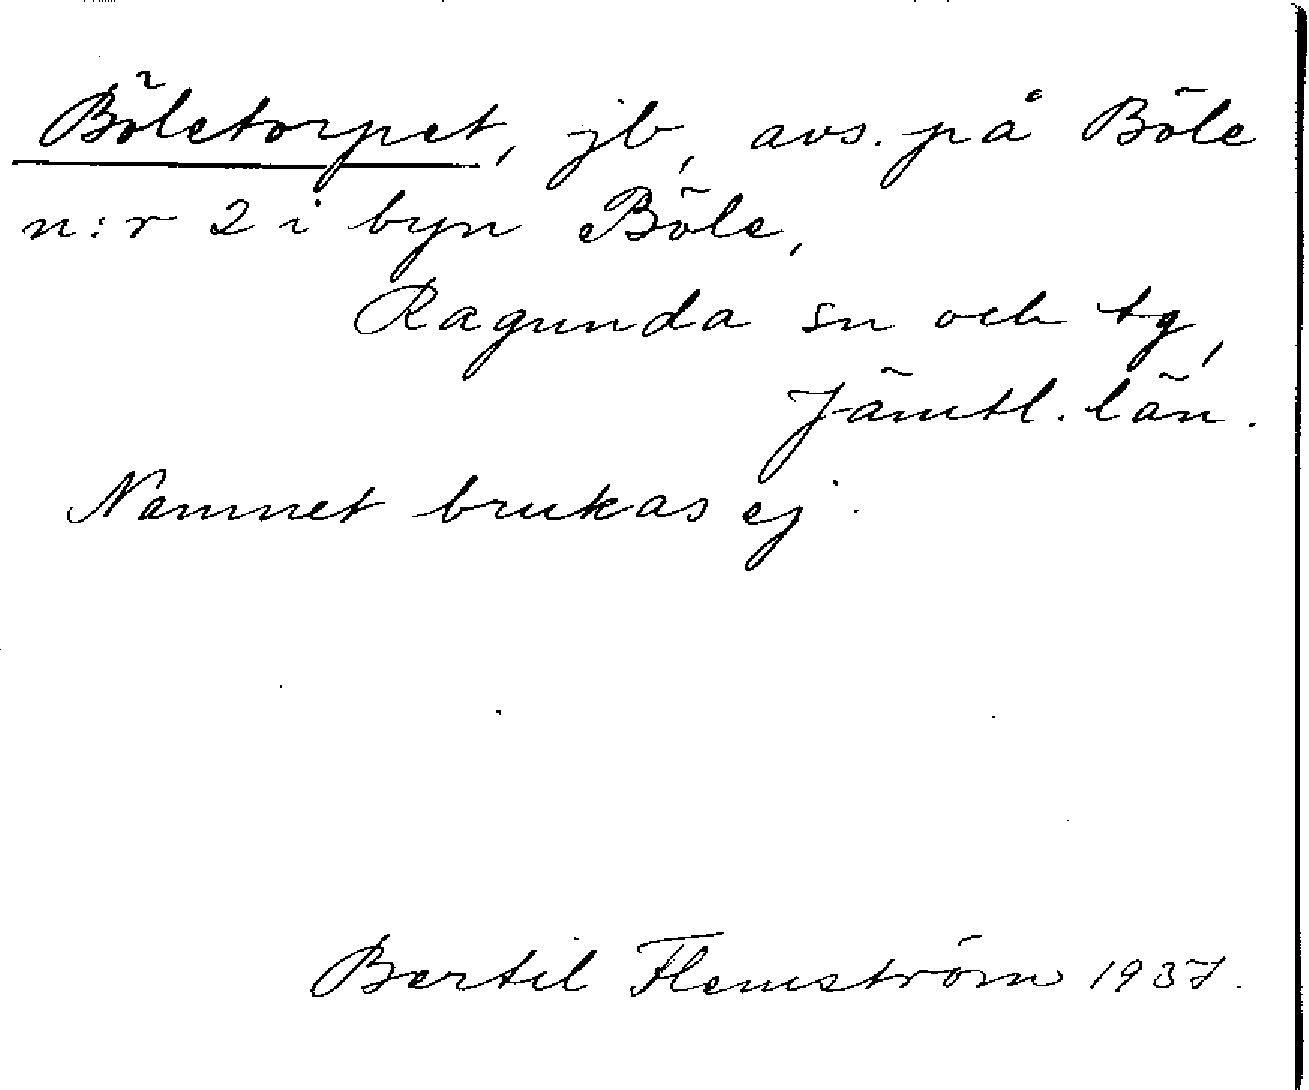 Böletorpet, jb, avs. på Böle
n:r 2 i byn Böle,
Ragunda sn och tg,
Jämtl. län.
Namnet brukas ej.
Bertil Flemström 1937.